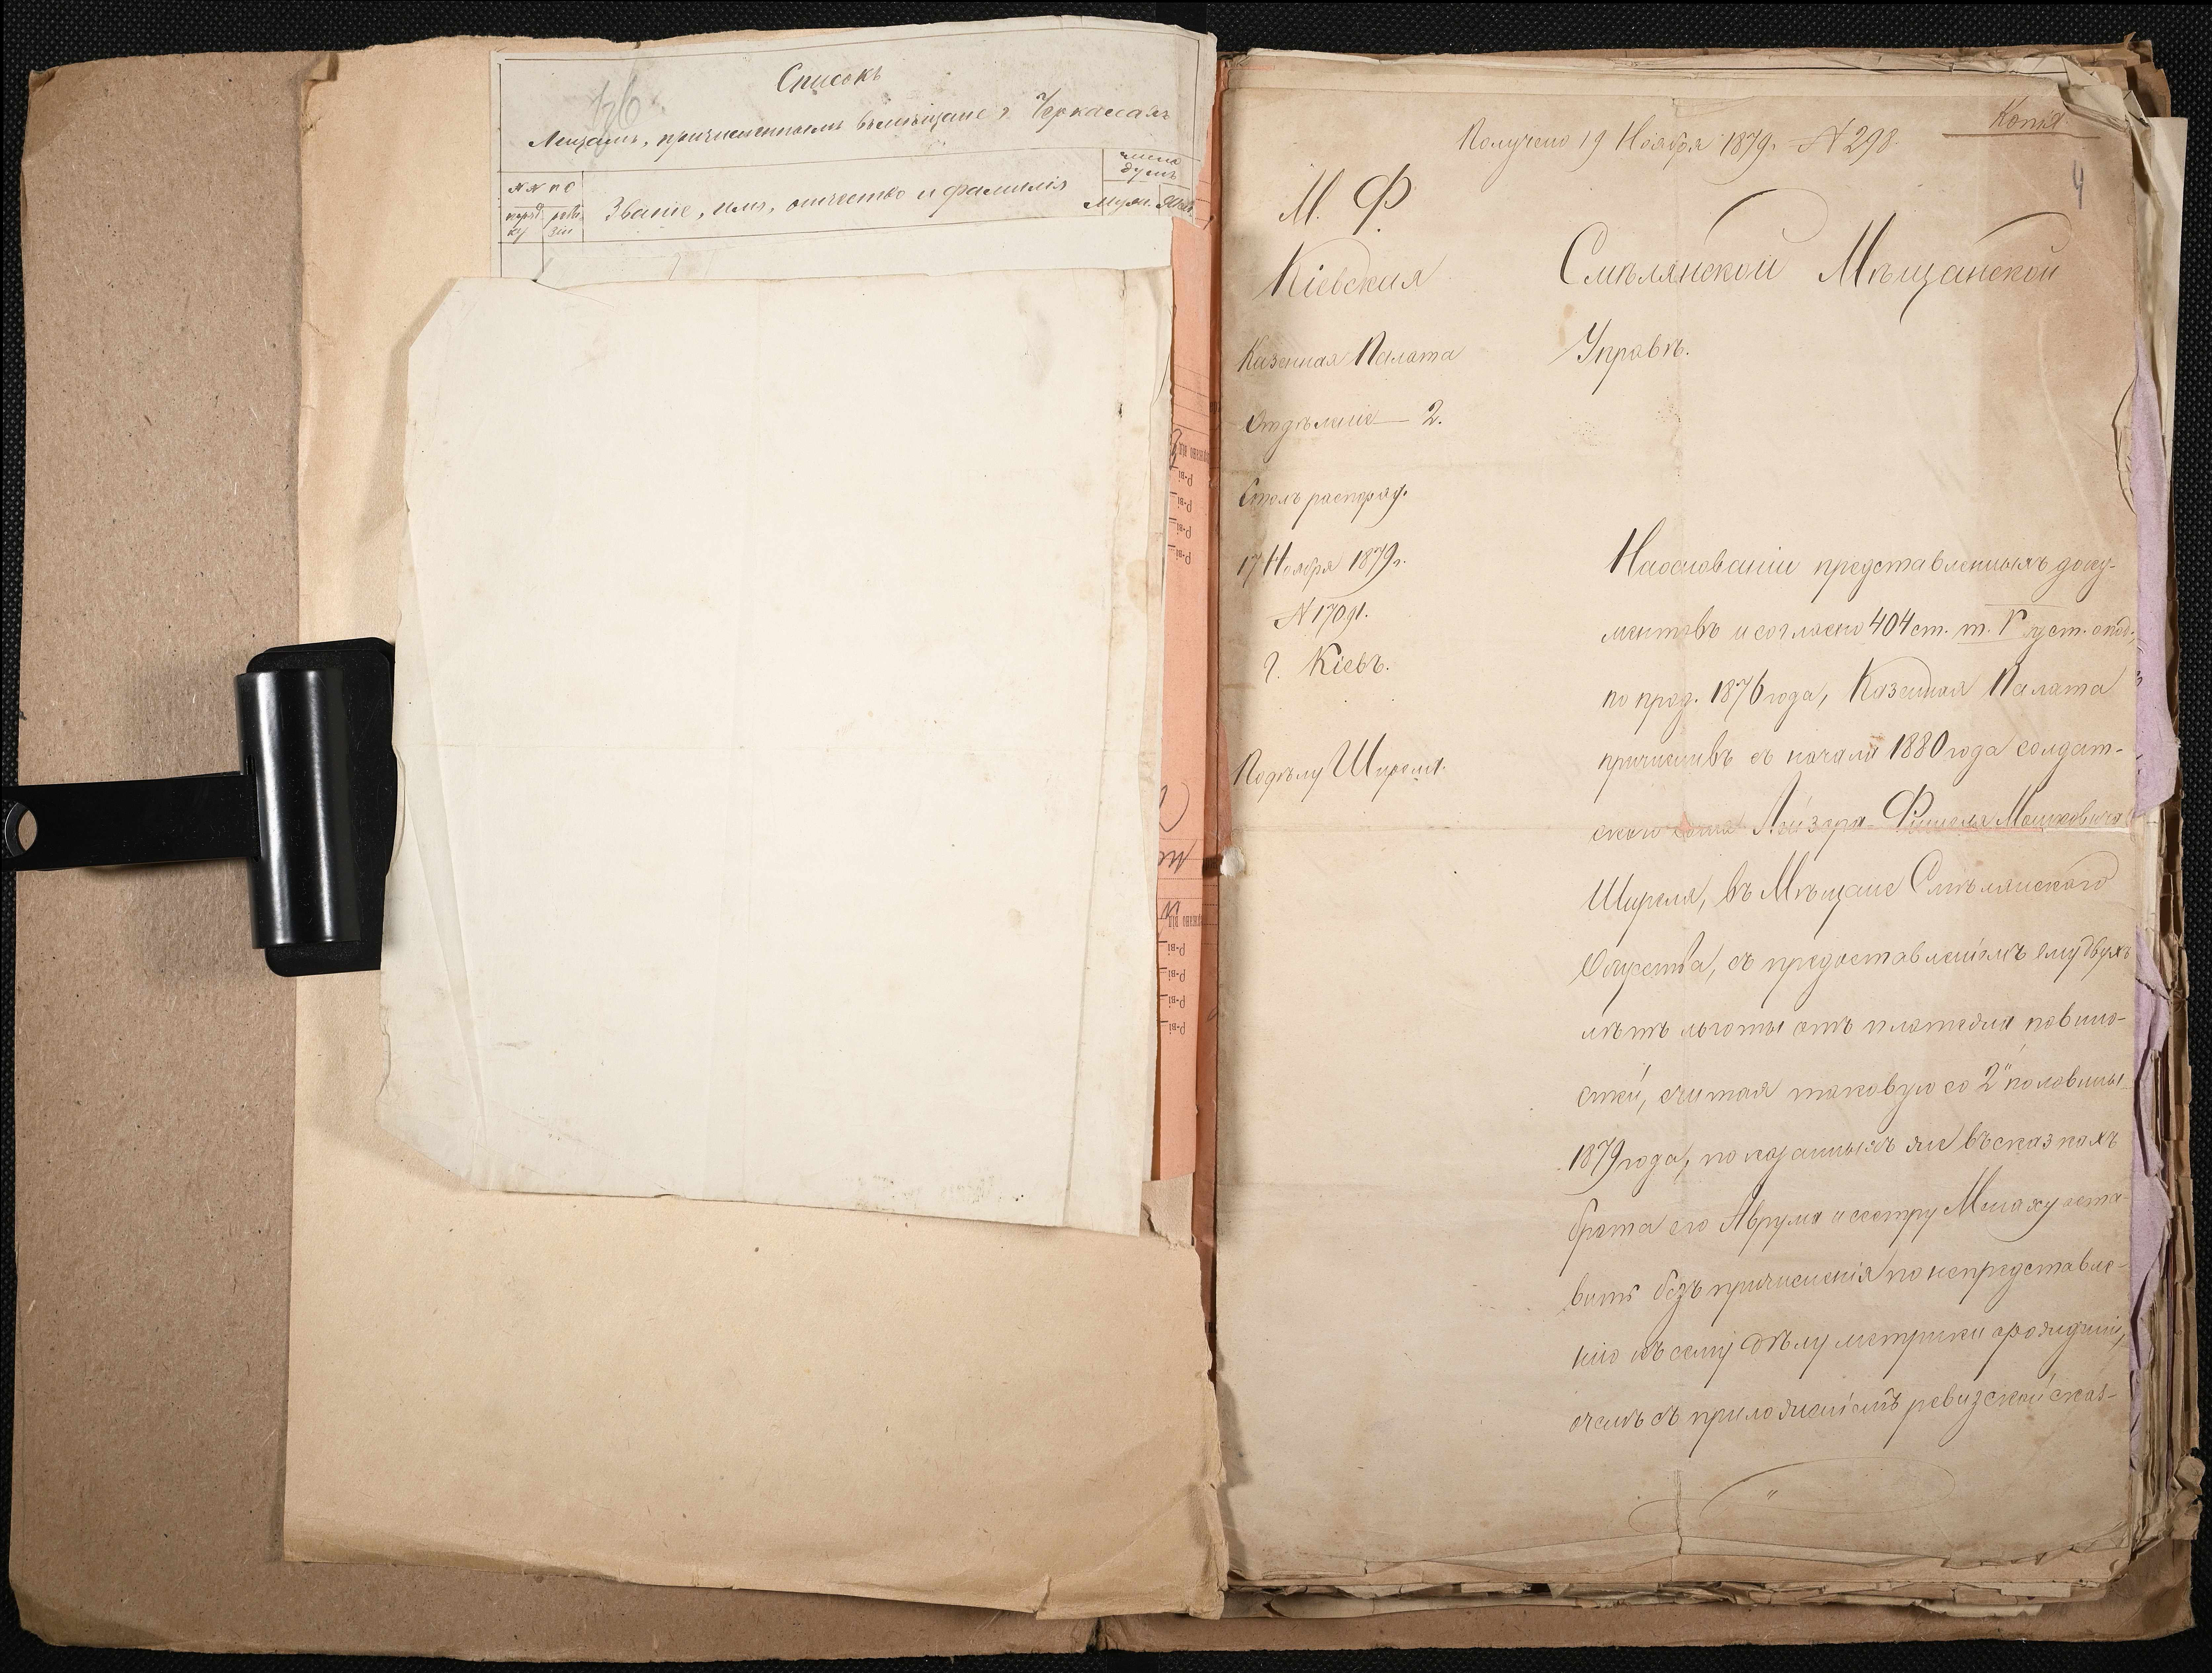 Списокъ
Лицамъ, причисленнымъ въ мѣщане г. Черкассахъ
№№ по
поряд ку
реви зіи
Званіе, имя, отчество и фамилія
число душъ
муж. Жен.
Копія
Получено 19 Ноября 1879г. № 298.
4
М. Ф.
Кіевская
Казенная Палата
Отдѣленіе 2.
Столъ распоряд.
17 Ноября 1879г.
№ 17091.
г. Кіевъ.
По дѣлу Ширеля.
Смѣлянской Мѣщанской
Управѣ.
На основаніи представленныхъ доку-
ментовъ и согласно 404 ст. т. V уст. о под.,
по прод. 1876 года, Казенная Палата
причисливъ съ начала 1880 года солдат-
скаго сына Лейзера-Фишеля Мошковича
Ширеля, въ Мѣщане Смѣлянскаго
Общества, съ предоставленіемъ ему двухъ
лѣтъ льготы отъ платежа повинно-
стей, считая таковую со 2й половины
1879 года, показанныхъ же въ сказкахъ
брата его Аврума и сестру Малаху оста-
вить безъ причисленія по непредставле-
нію къ сему дѣлу метрики о рожденіи,
о чемъ съ приложеніемъ ревизской сказ-